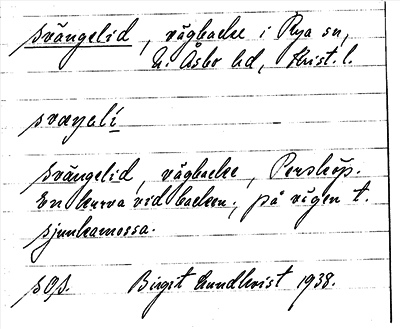 svängelid, vägbacke i Rya sn,
N. Åsbo hd, Krist. l.
sväŋəlí
svängelid, vägbacke, Perstorp.
En kurva vid backen, på vägen t.
sjunkamossa.
Birgit Lundkvist 1938.